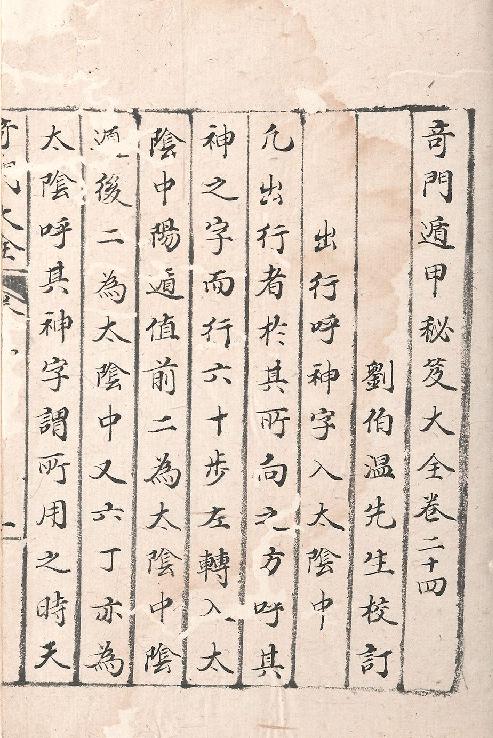 奇門遁甲秘笈大全卷二十四
劉伯溫先生校訂
出行呼神字入太陰中
凢出行者於其所向之方呼其
神之字而行六十步左轉入太
陰中陽遁值前二為太陰中陰
遁後二為太陰中又六丁亦為
太陰呼其神字謂所用之時天